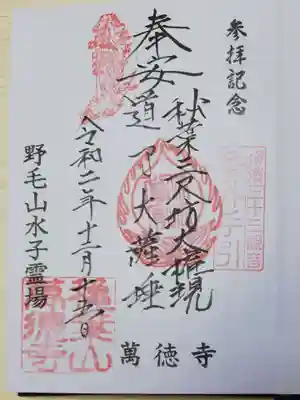 参拝記念
秋葉三尺坊大権現
奉安
道了大薩埵
令和二年十一月十五日
野毛山水子霊場
萬徳寺